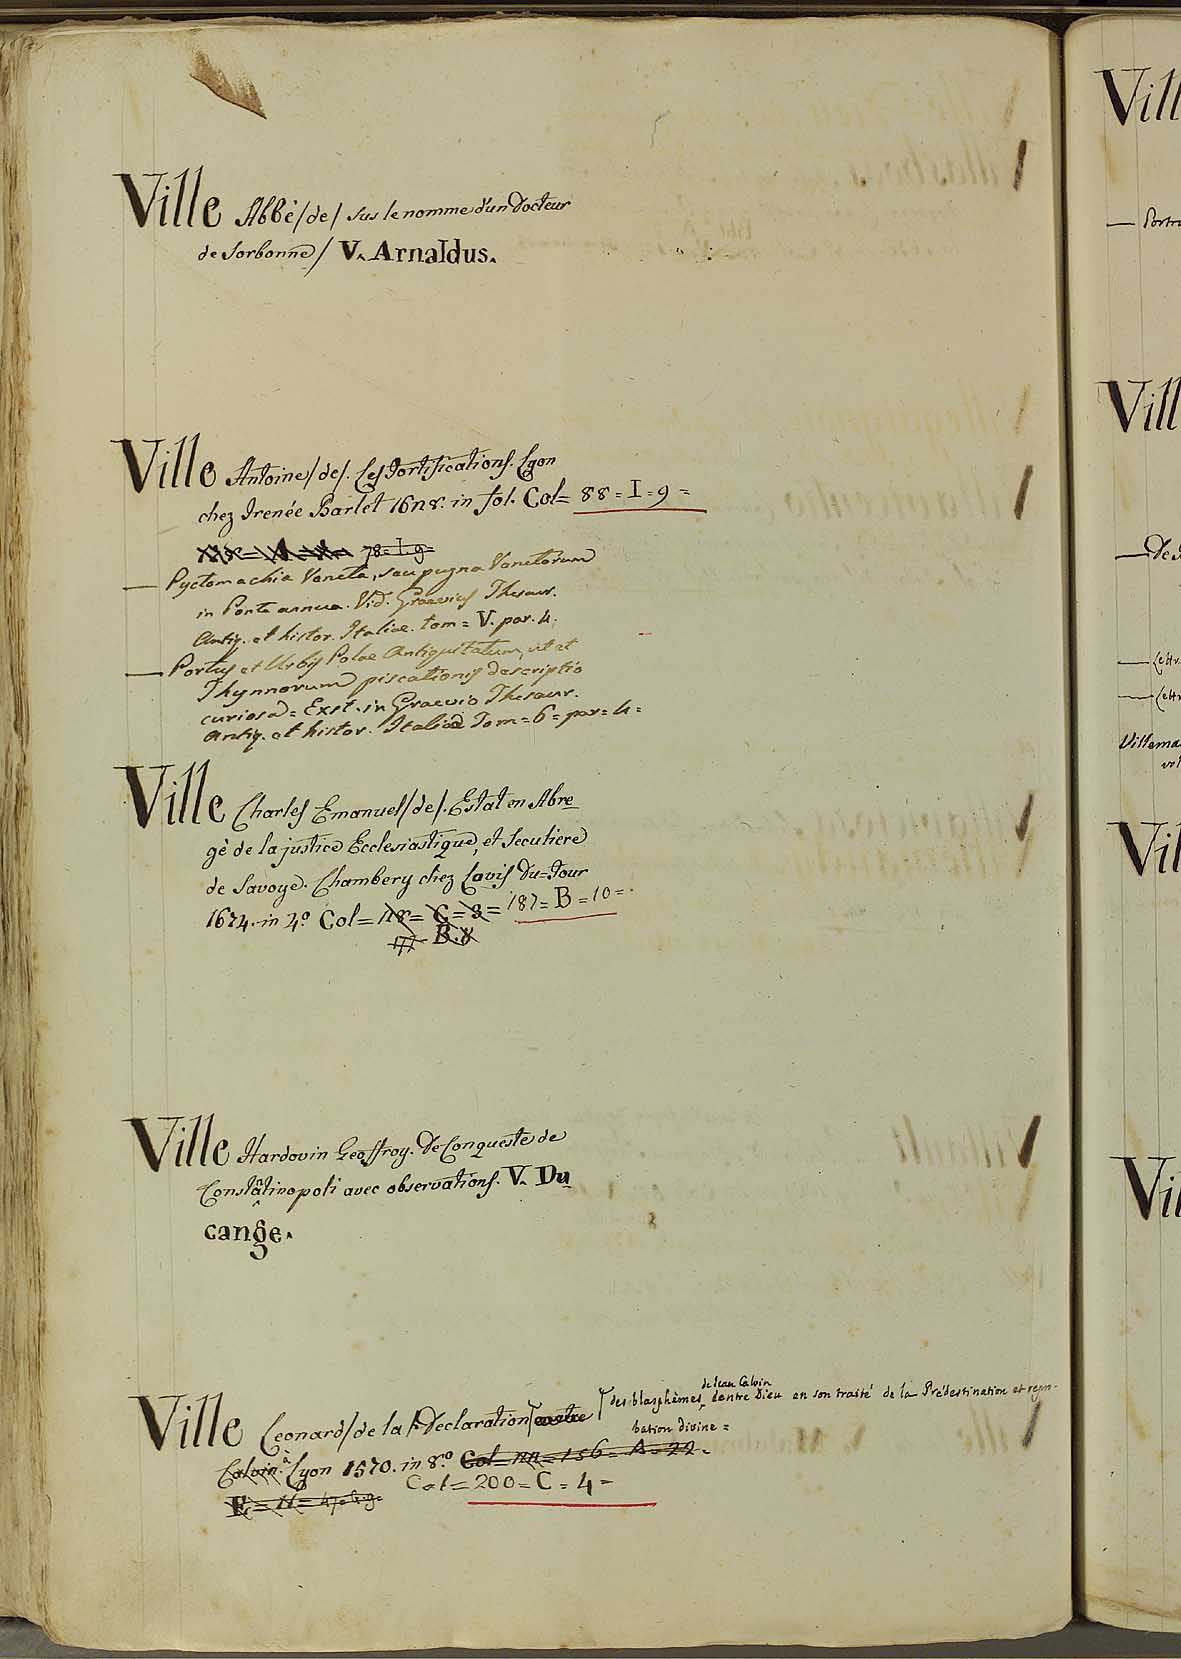 Ville Abbé/de/ sus le nomme d'un Docteur
de Sorbonne/ V. Arnaldus.
Ville Antoine/de/. Les Fortifications. Lyon
chez Irenée Barlet 1628. in fol. Col= 88=I=9=
78=I.9=
— Pyctomachia Veneta, seu pugna Venetorum
in Ponte annua. Vid. Graevius Thesaur.
Antiq. et histor. Italiae. tom= V. par. 4.
— Portus et Urbis Polae Antiquitatum, ut et
Thynnorum piscationis descriptio
curiosa= Exst. in Graevio Thesaur.
Antiq. et histor. Italiae Tom=6=par=4=
Ville Charles Emanuel/de/. Estat en Abre
gé de la justice Ecclesiastique, et Seculiere
de Savoye. Chambery chez Lovis Du=Four
1674. in 4.º Col= 118= C=8= 187=B=10=
177 B.8
Ville Hardovin Geoffroy. De Conqueste de
Constâtinopoli avec observations. V. Du
cange.
de Jean Calvin
des blasphèmes contre Dieu en son traité de la Prédestination et repro-
Ville Leonard/de la/. Declaration contre
bation divine=
Calvin. à Lyon 1570. in 8.º Col= nn=156=A=22.
Col=200=C=4=
Vill
— Portra
Vill
— De
— Lettr
— Lettr
Villema
vol
Vil
Vil